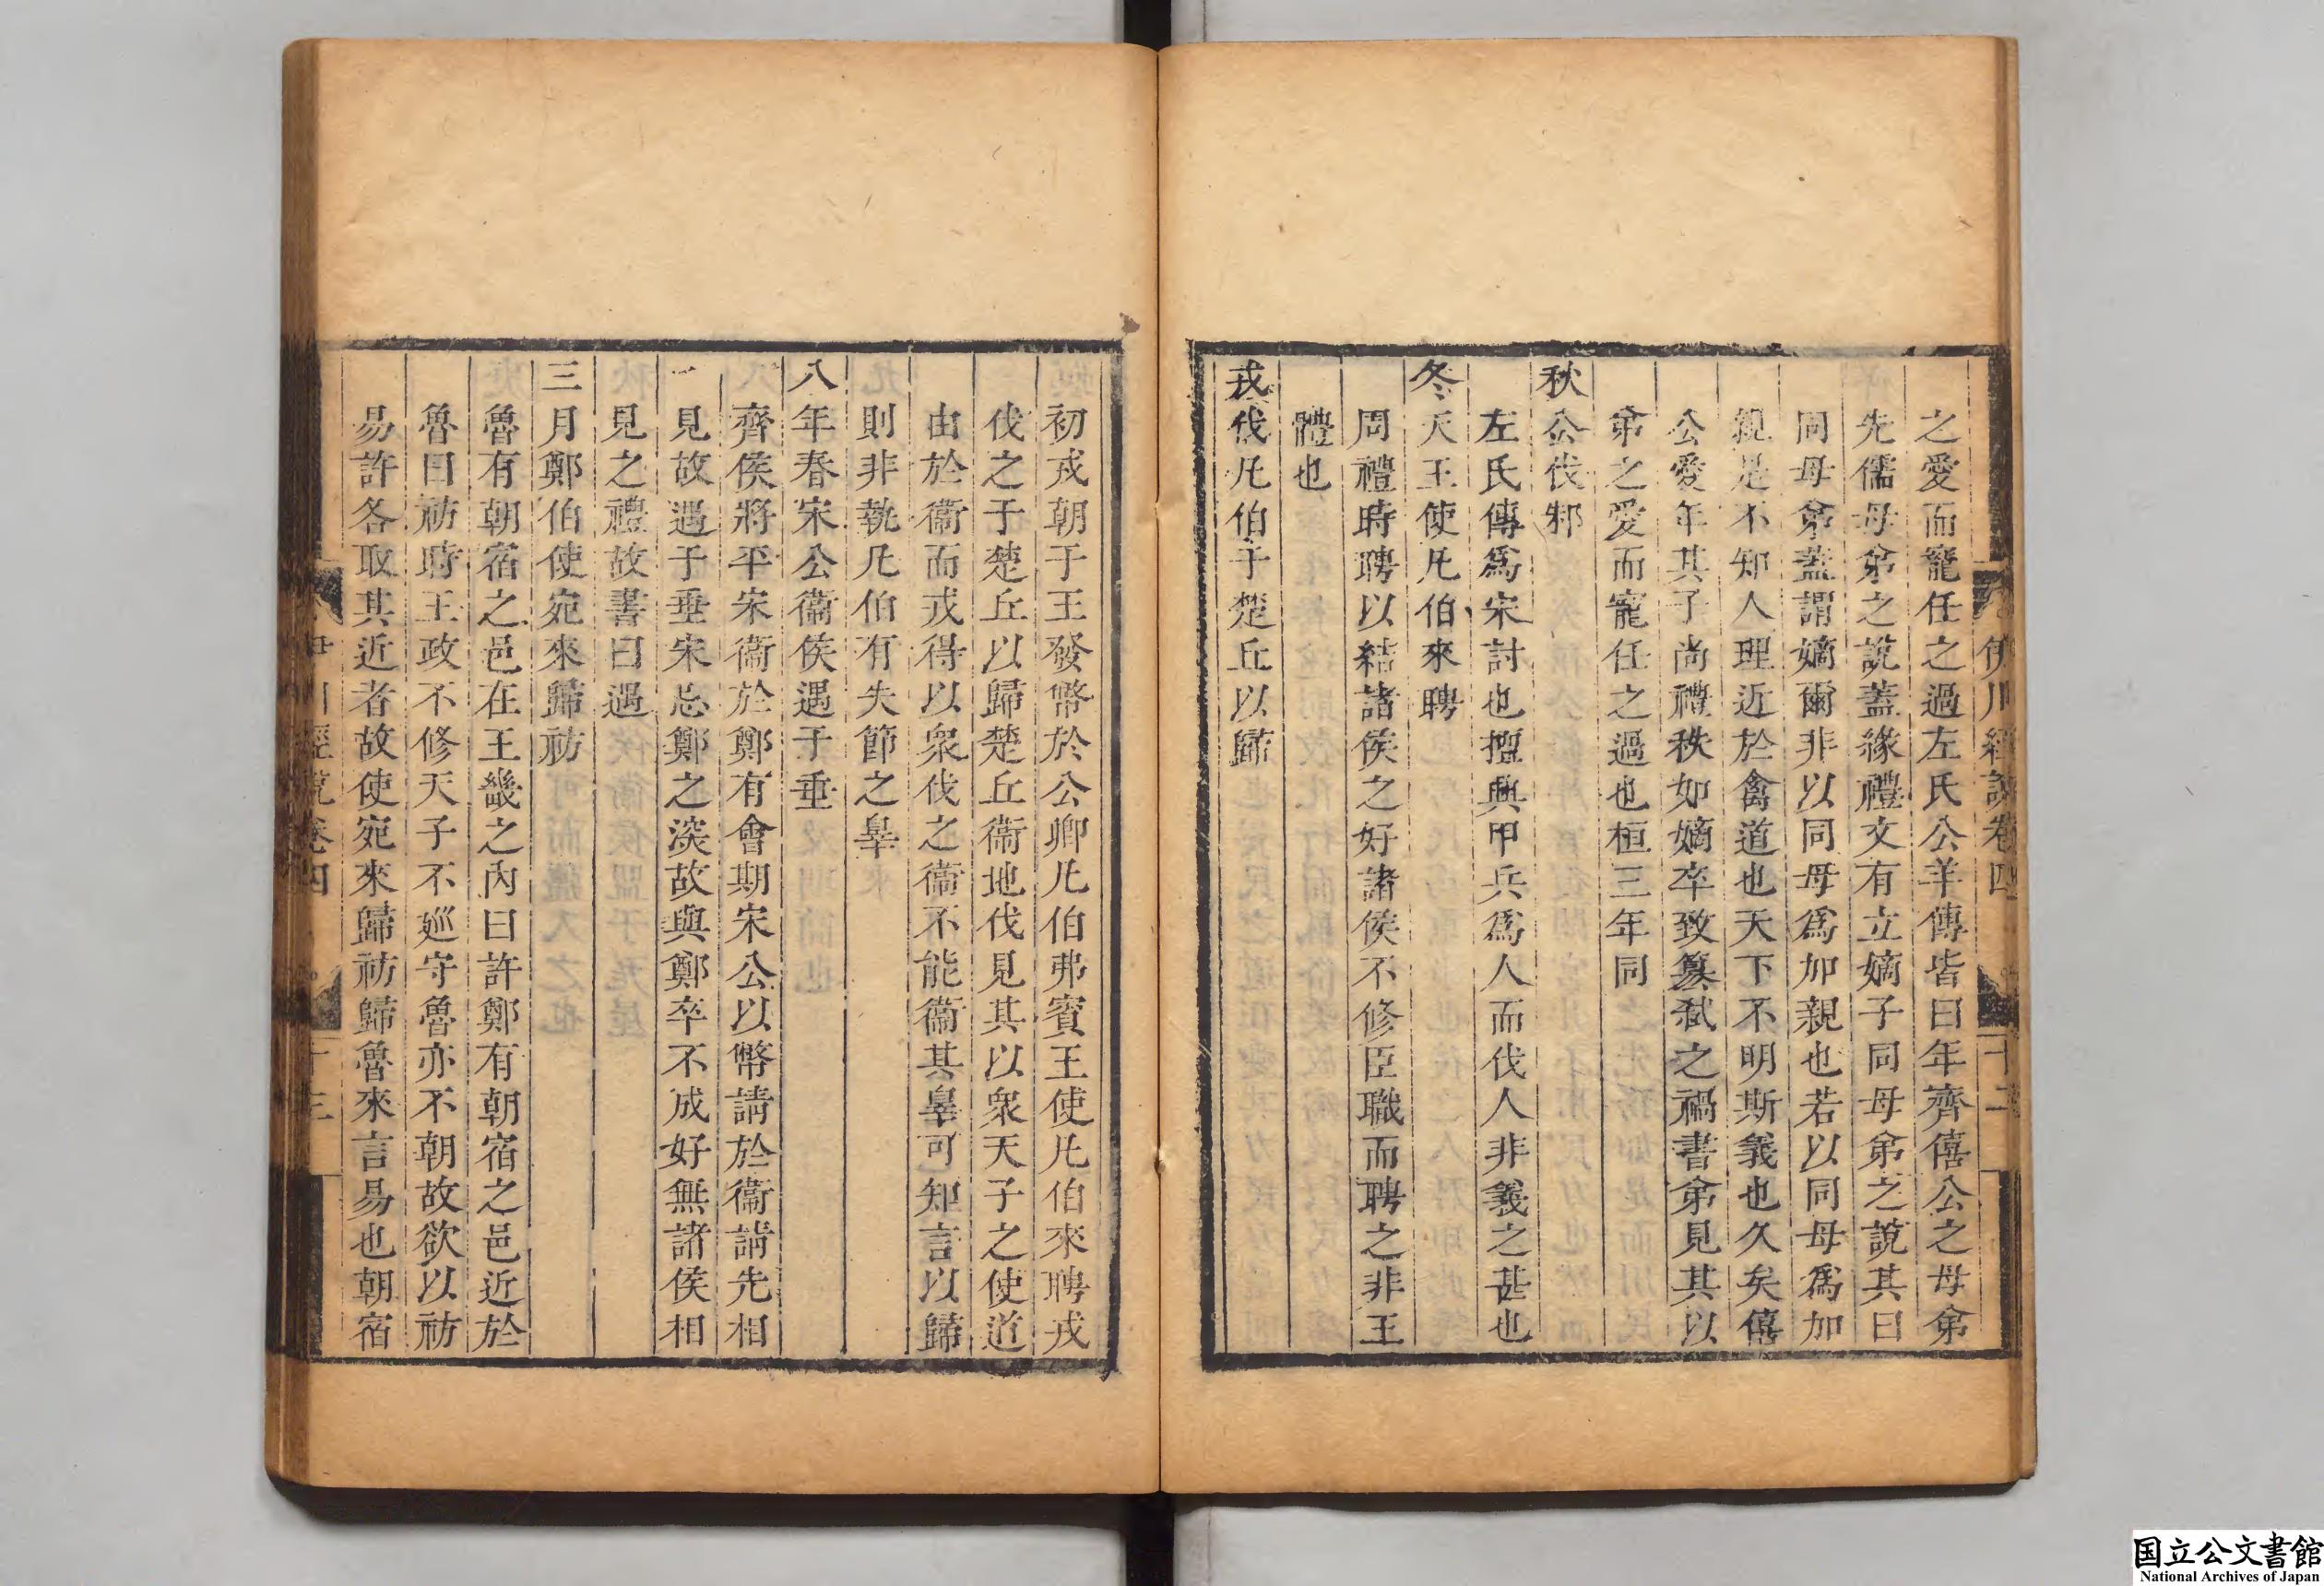 伊川經說卷四 十二
之愛而寵任之過左氏公羊傳皆曰年齊僖公之母弟
先儒母弟之說蓋緣禮文有立嫡子同母弟之說其曰
同母弟蓋謂嫡爾非以同母爲加親也若以同母爲加
親是不知人理近於禽道也天下不明斯義也久矣僖
公愛年其子尚禮秩如嫡卒致篡弑之禍書弟見其以
弟之愛而寵任之過也桓三年同
秋公伐邾
左氏傳爲宋討也擅興甲兵爲人而伐人非義之甚也
冬天王使凡伯來聘
周禮時聘以結諸侯之好諸侯不修臣職而聘之非王
體也
戎伐凡伯于楚丘以歸
初戎朝于王發幣於公卿凡伯弗賓王使凡伯來聘戎
伐之于楚丘以歸楚丘衞地伐見其以衆天子之使道
由於衞而戎得以衆伐之衞不能衞其辠可知言以歸
則非執凡伯有失節之辠
八年春宋公衞侯遇于垂
齊侯將平宋衞於鄭有會期宋公以幣請於衞請先相
見故遇于垂宋忌鄭之深故與鄭卒不成好無諸侯相
見之禮故書曰遇
三月鄭伯使宛來歸祊
魯有朝宿之邑在王畿之內曰許鄭有朝宿之邑近於
魯曰祊時王政不修天子不巡守魯亦不朝故欲以祊
易許各取其近者故使宛來歸祊歸魯來言易也朝宿
伊川經說卷四 十三
国立公文書館
National Archives of Japan